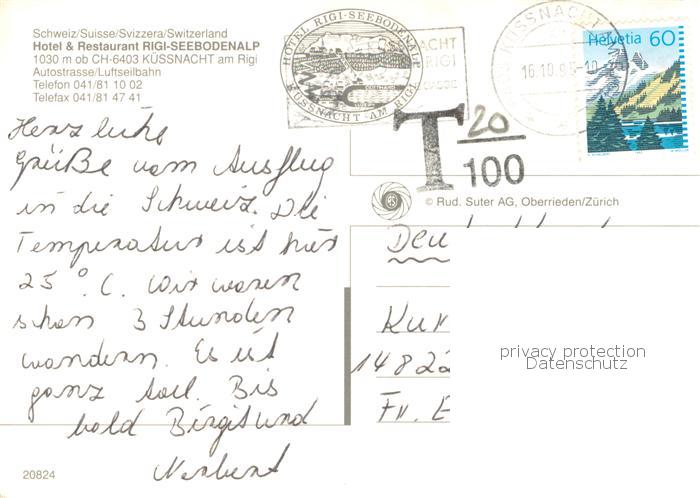 Schweiz/Suisse/Svizzera/Switzerland
Hotel & Restaurant RIGI-SEEBODENALP
1030 m ob CH-6403 KÜSSNACHT am Rigi
Autostrasse/Luftseilbahn
Telefon 041/81 10 02
Telefax 041/81 47 41
HOTEL RIGI-SEEBODENALP
KÜSSNACHT AM RIGI
ACHT
RIGI
GASSE
KÜSSNACHT
16.10.95-10
Helvetia 60
T 20/100
© Rud. Suter AG, Oberrieden/Zürich
Herzliche
Grüße vom Ausflug
in die Schweiz. Die
Temperatur ist hier
25 °C. Wir waren
schon 3 Stunden
wandern. Es ist
ganz toll. Bis
bald Birgit und
Norbert
Deu
Kur
14822
Fr. E
privacy protection
Datenschutz
20824